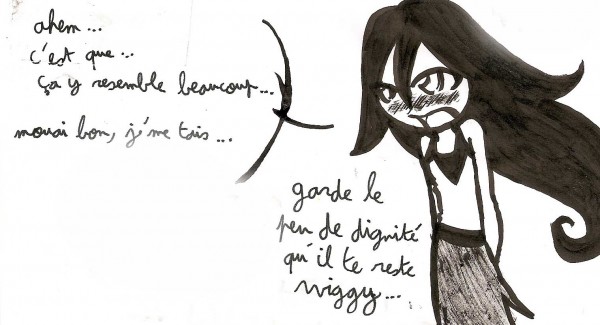 ahem...
c'est que...
ça y resemble beaucoup...
mouai bon, j'me tais...
garde le
peu de dignité
qu'il te reste
wiggy...